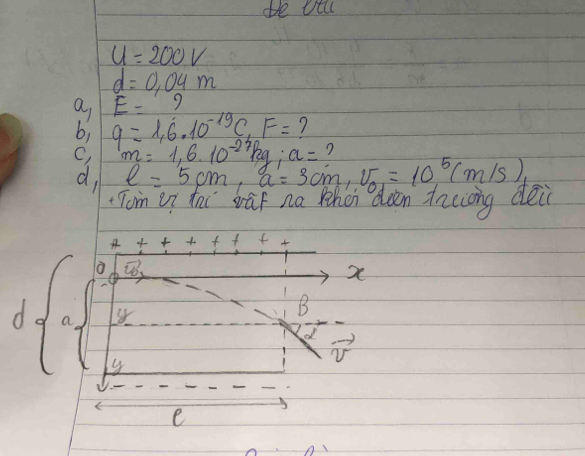 Đề bài
U = 200 V
d = 0,04 m
a, E = ?
b, q = 1,6.10⁻¹⁹C, F = ?
c, m = 1,6.10⁻²⁷kg ; a = ?
d, l = 5cm, a = 3cm, v₀ = 10⁵(m/s),
Tìm vị trí vật ra khỏi điện trường đều
+ + + + + + + +
O v₀ x
d a y B α v
y
- - - - - - -
l